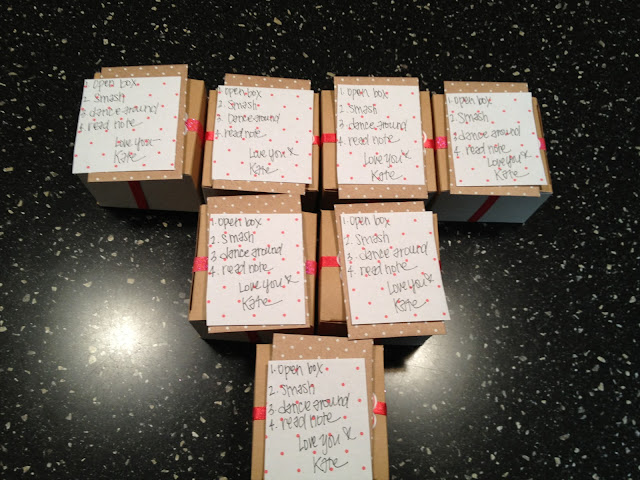 1. Open box
2. Smash
3. dance around
4. read note
Love you
Kate
1. Open box
2. Smash
3. Dance around
4. read note
Love you
Kate
1. Open box
2. Smash
3. dance around
4. read note
Love you
Kate
1. Open box
2. Smash
3. dance around
4. read note
Love you
Kate
1. Open box
2. Smash
3. dance around
4. read note
Love you
Kate
1. Open box
2. Smash
3. dance around
4. read note
Love you
Kate
1. Open box
2. Smash
3. dance around
4. read note
Love you
Kate